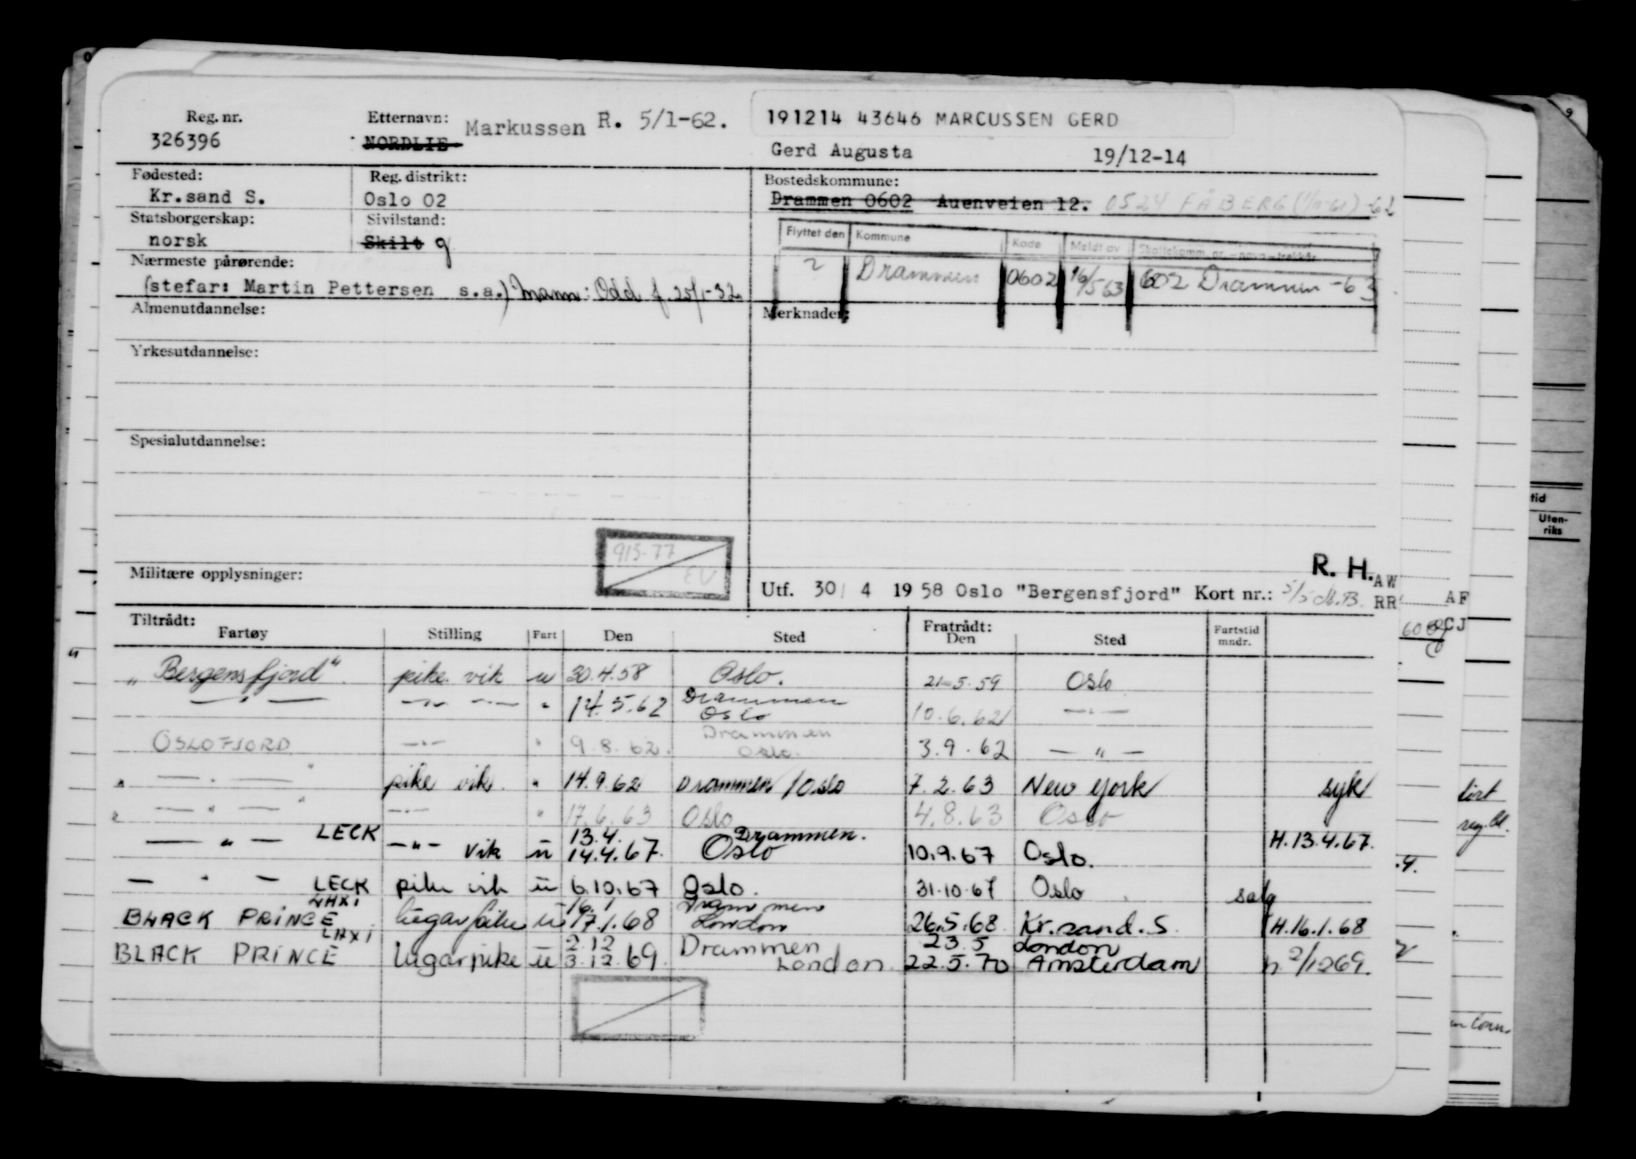 Reg. nr. Etternavn: Markussen R. 5/1-62. 191214 43646 MARCUSSEN GERD
326396 NORDLIE Gerd Augusta 19/12-14
Fødested: Reg. distrikt: Bostedskommune:
Kr.sand S. Oslo 02 Drammen 0602 Auenveien 12. 0524 FÅBERG -62
Statsborgerskap: Sivilstand: Flyttet den Kommune Kode Meldt av
norsk Skilt g
Nærmeste pårørende: 2 Drammen 0602 16/5 63 602 Drammen -63
(stefar: Martin Pettersen s.a.) Mann: Odd f. 25/1-32
Almenutdannelse: Merknader:
Yrkesutdannelse:
Spesialutdannelse:
915-77
EV
R. H. AW
Militære opplysninger: Utf. 30/ 4 19 58 Oslo "Bergensfjord" Kort nr.: RR AF
CJ
Tiltrådt: Fratrådt:
Fartøy Stilling Fart Den Sted Den Sted Fartstid mndr.
„Bergensfjord" pike vik u 30.4.58 Oslo. 21.5.59 Oslo
— " — — " — " 14.5.62 Drammen Oslo 10.6.62 — " —
OSLOFJORD — " — " 9.8.62. Drammen Oslo. 3.9.62 — " —
" — " — pike vik. " 14.9.62 Drammen / Oslo 7.2.63 New York syk
" — " — — " — " 17.6.63 Oslo 4.8.63 Oslo
— " — LECK — " — vik ü 13.4. 14.4.67. Drammen. Oslo 10.9.67 Oslo. H.13.4.67.
— " — LECK pike vik ü 6.10.67 Oslo. 31.10.67 Oslo salg
BLACK PRINCE LHXI lugarpike ü 16.1 17.1.68 Drammen London 26.5.68 Kr.sand.S. H.16.1.68
BLACK PRINCE LHXI lugarpike ü 2.12 3.12.69. Drammen London. 23.5 22.5.70 London Amsterdam h 2/1269.
tid
Uten-
riks